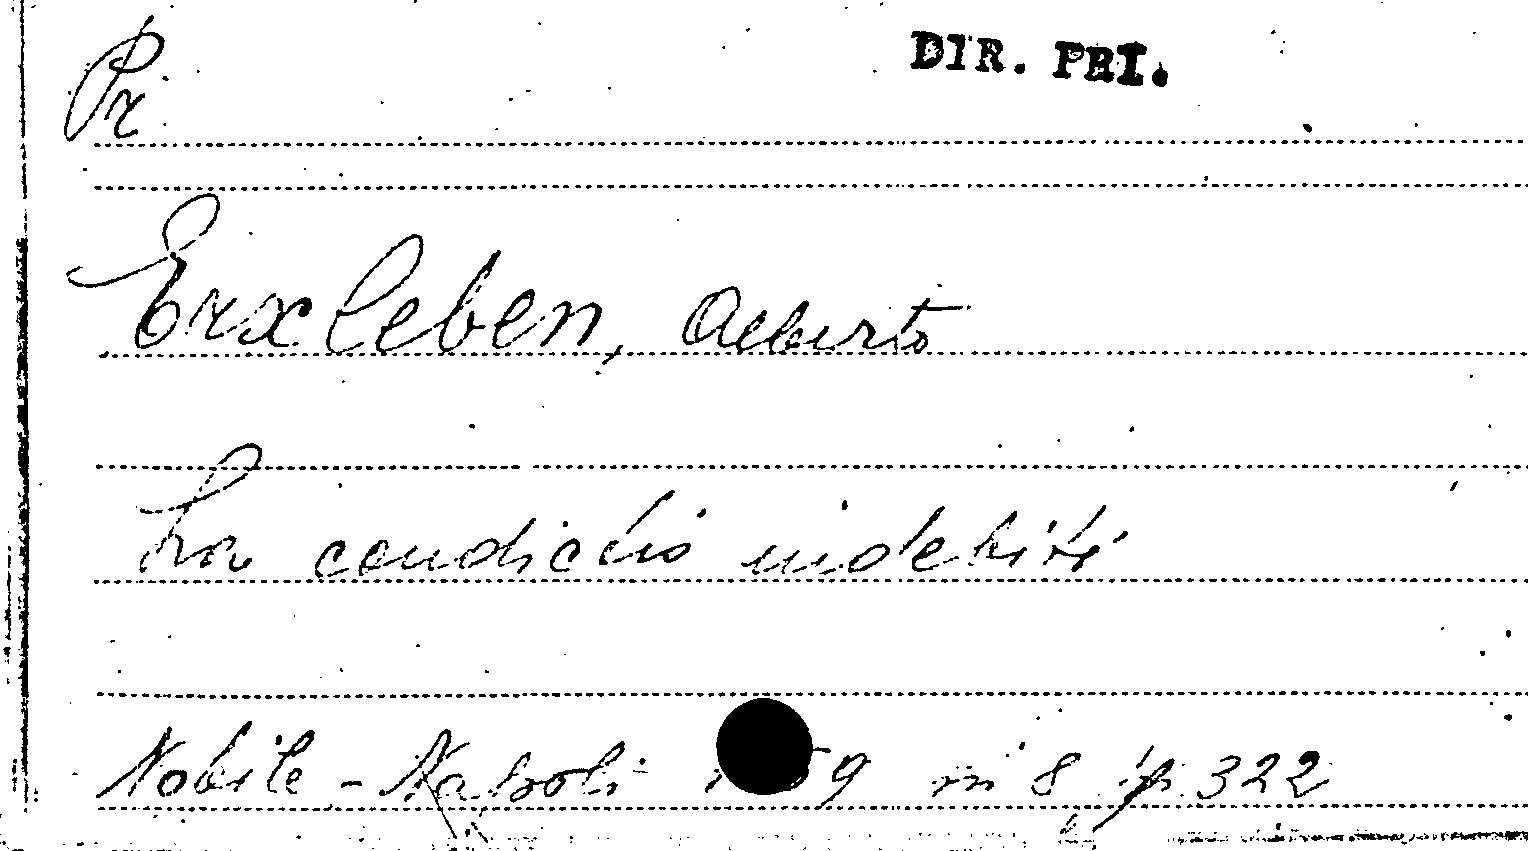 DIR. PRI.
Pr
Erxleben, Alberto
La condictio indebiti
Nobile - Napoli 59 in 8 p. 322